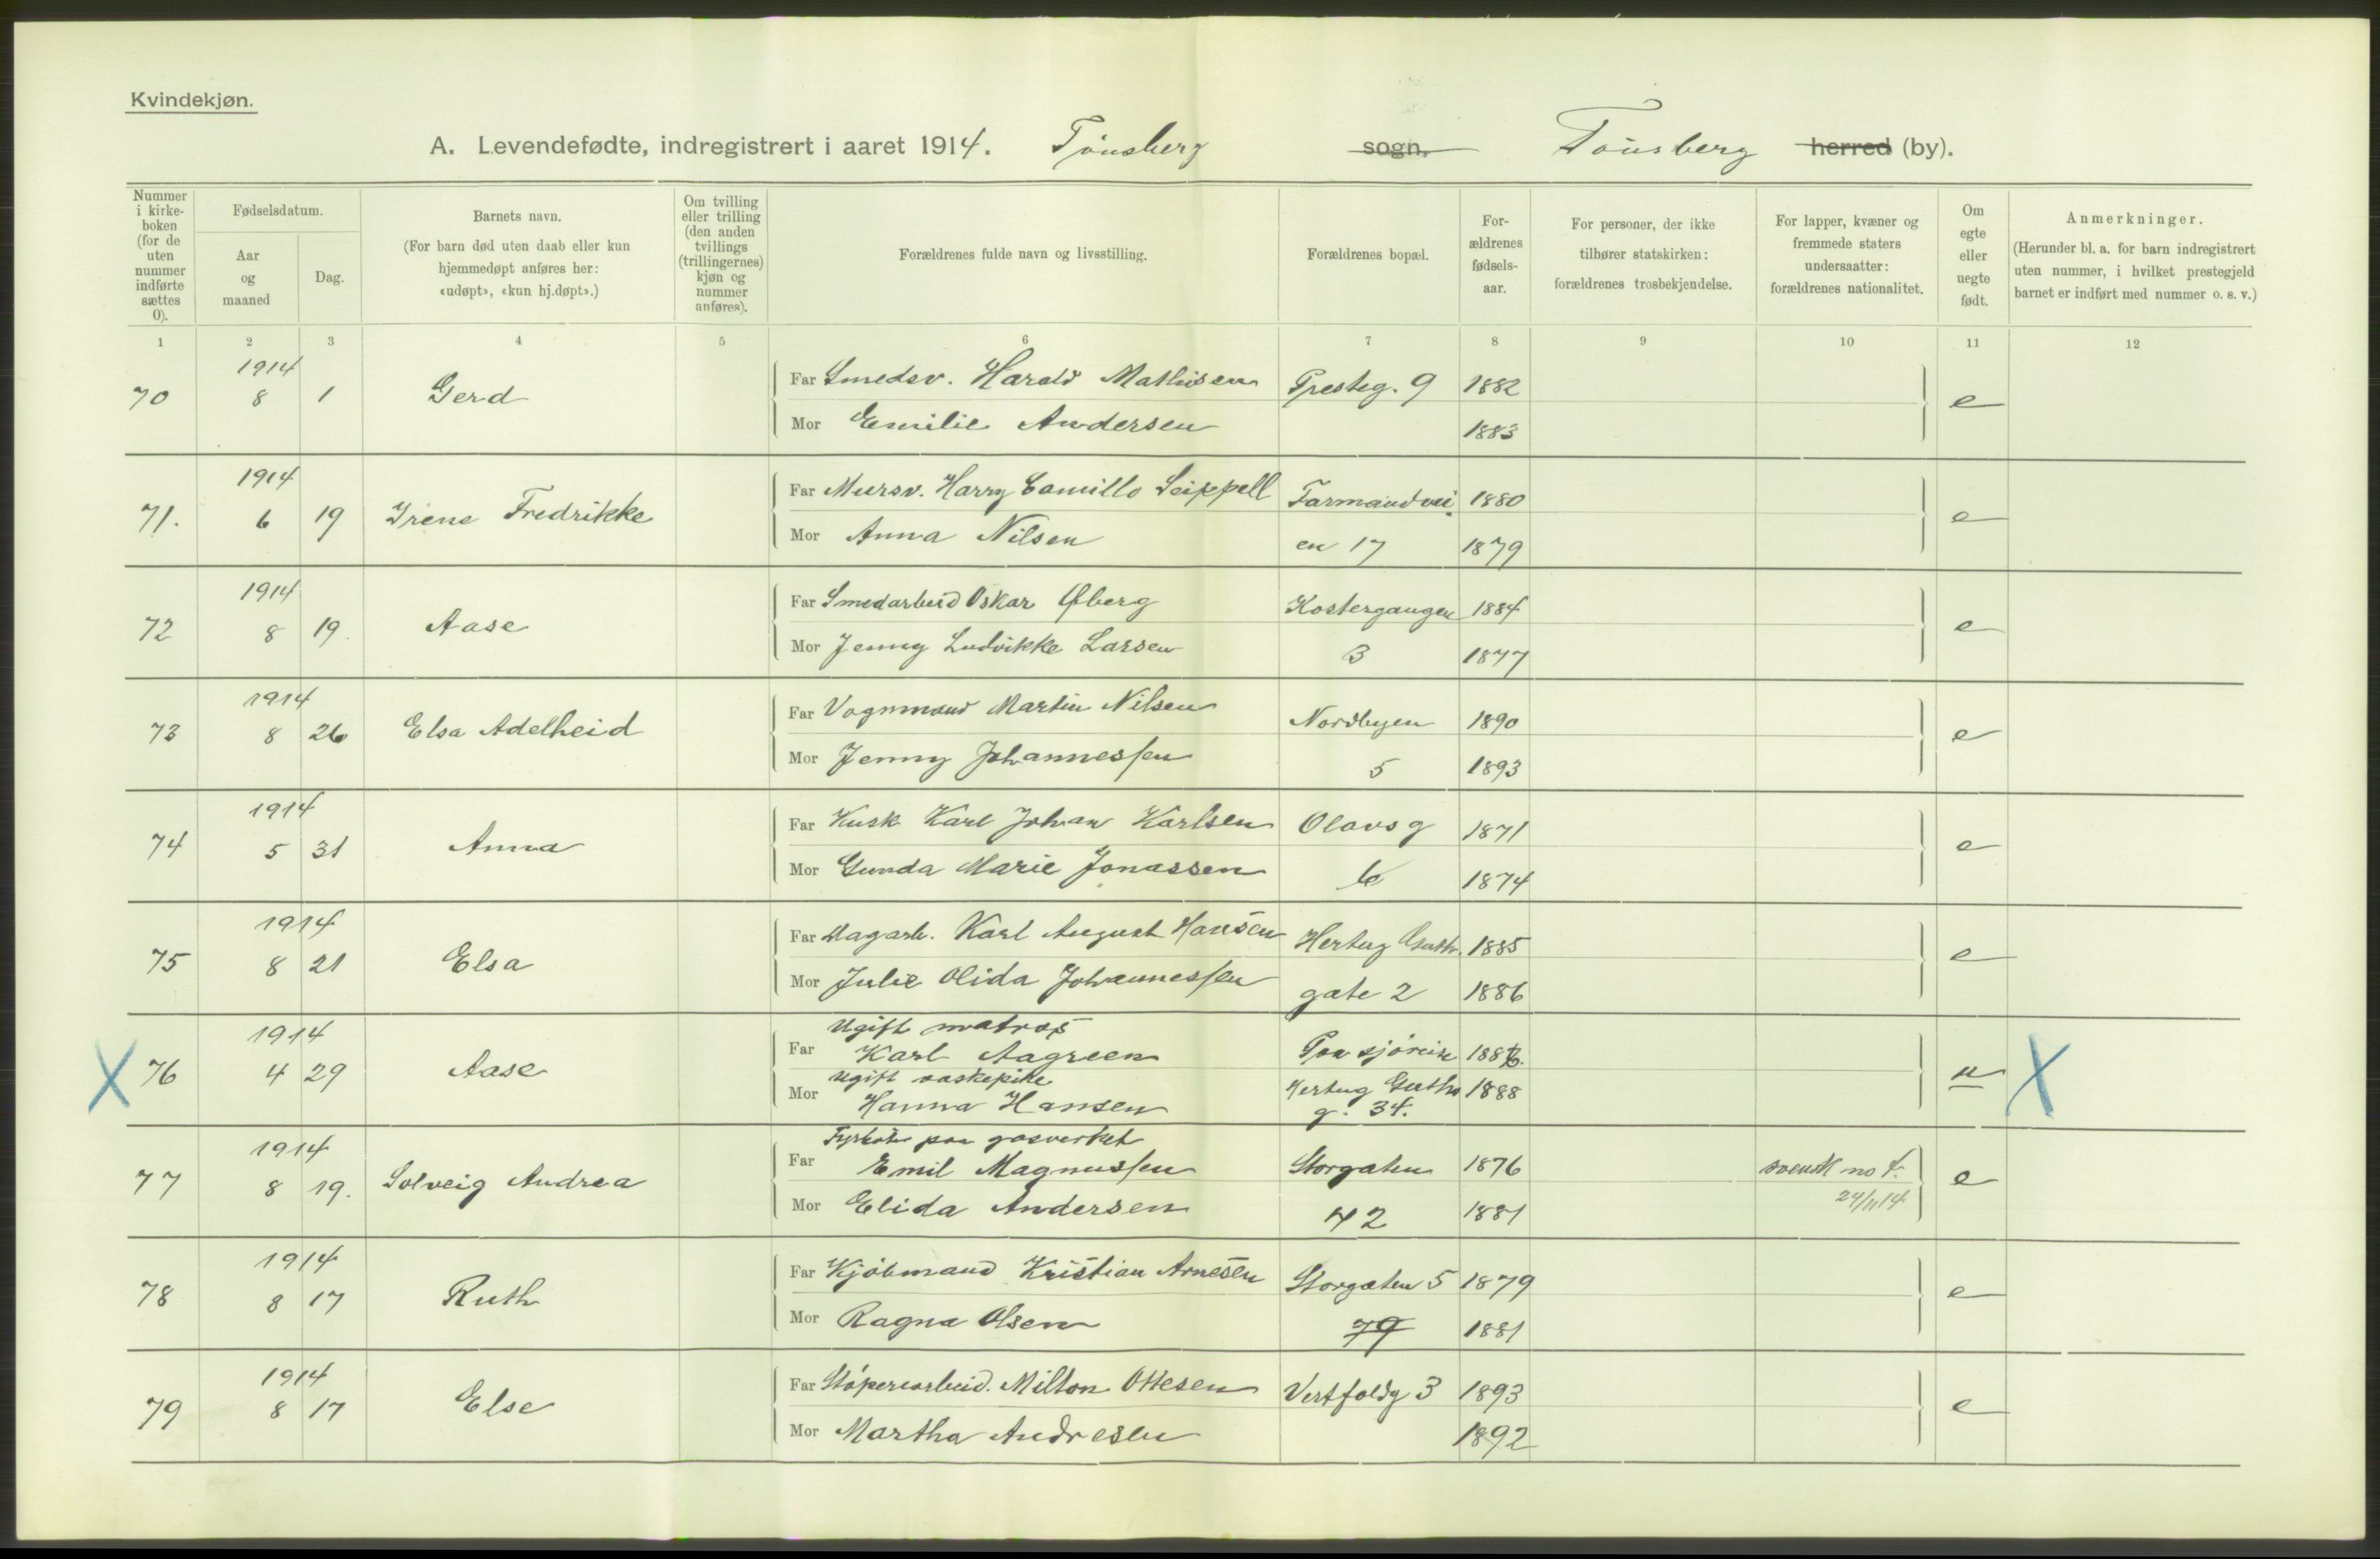 Kvindekjøn.
A. Levendefødte, indregistrert i aaret 1914. Tønsberg sogn, Tønsberg herred (by).
Nummer i kirkeboken (for de uten nummer indførte sættes 0).
Fødselsdatum.
Aar og maaned
Dag.
Barnets navn.
(For barn død uten daab eller kun hjemmedøpt anføres her: «udøpt», «kun hj.døpt».)
Om tvilling eller trilling (den anden tvillings (trillingernes) kjøn og nummer anføres).
Forældrenes fulde navn og livsstilling.
Forældrenes bopæl.
Forældrenes fødselsaar.
For personer, der ikke tilhører statskirken: forældrenes trosbekjendelse.
For lapper, kvæner og fremmede staters undersaatter: forældrenes nationalitet.
Om egte eller uegte født.
Anmerkninger.
(Herunder bl. a. for barn indregistrert uten nummer, i hvilket prestegjeld barnet er indført med nummer o. s. v.)
1 2 3 4 5 6 7 8 9 10 11 12
1914
70 8 1 Gerd Far Smedsv. Harald Mathisen Presteg. 9 1882 e
Mor Emilie Andersen 1883
1914
71. 6 19 Irene Fredrikke Far Mursv. Harry Camillo Seippell Farmandvei 1880 e
Mor Anna Nilsen en 17 1879
1914
72 8 19. Aase Far Smedarbeid Oskar Øberg Kostergangen 1884 e
Mor Jenny Ludvikke Larsen 3 1877
1914
73 8 26 Elsa Adelheid Far Vognmand Martin Nilsen Nordbyen 1890 e
Mor Jenny Johannessen 5 1893
1914
74 5 31 Anna Far Kusk Karl Johan Karlsen Olavsg 1871 e
Mor Gunda Marie Jonassen 6 1874
1914
75 8 21 Elsa Far Karl August Hansen Hertug Guth. 1885 e
Mor Julie Olida Johannessen gate 2 1886
1914 Ugift matros
X 76 4 29 Aase Far Karl Aagreen Paa sjöreise u X
Ugift vaskepike
Mor Hanna Hansen Hertug Guths 1888
g. 34.
1914 Fyrbøter paa gasverket
77 8 19. Solveig Andrea Far Emil Magnussen Storgaten 1876 svensk e
24/11 14
Mor Elida Andersen 42 1881
1914
78 8 17 Ruth Far Kjöbmand Kristian Arnesen Storgaten 5 1879 e
Mor Ragna Olsen 79 1881
1914
79 8 17 Else Far Støperiarbeid. Milton Ottesen Vestfoldg 3 1893 e
Mor Martha Andresen 1892